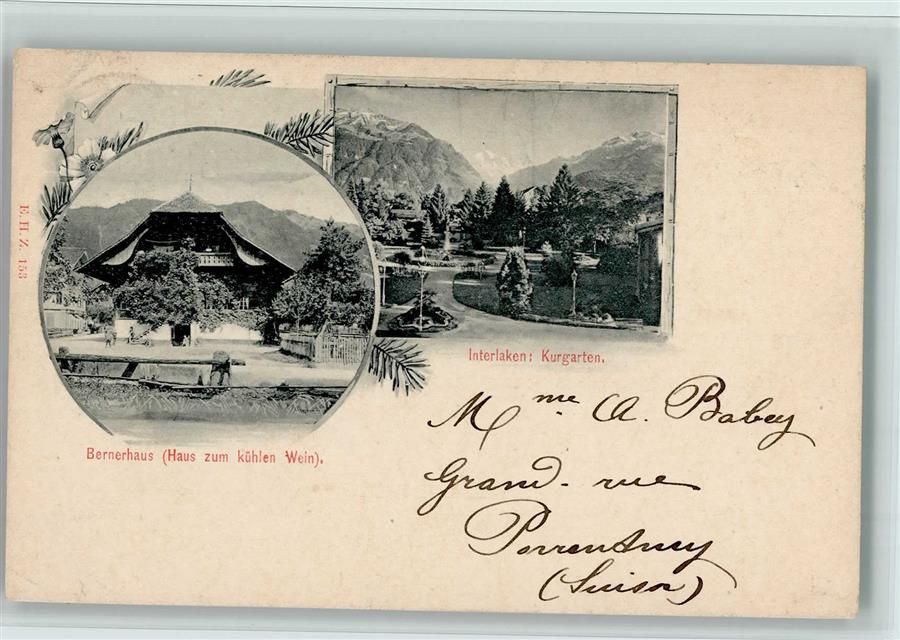 E. H. Z. 153
Interlaken: Kurgarten.
Bernerhaus (Haus zum kühlen Wein).
Mme A. Babey
Grand-rue
Porrentruy
(Suisse)